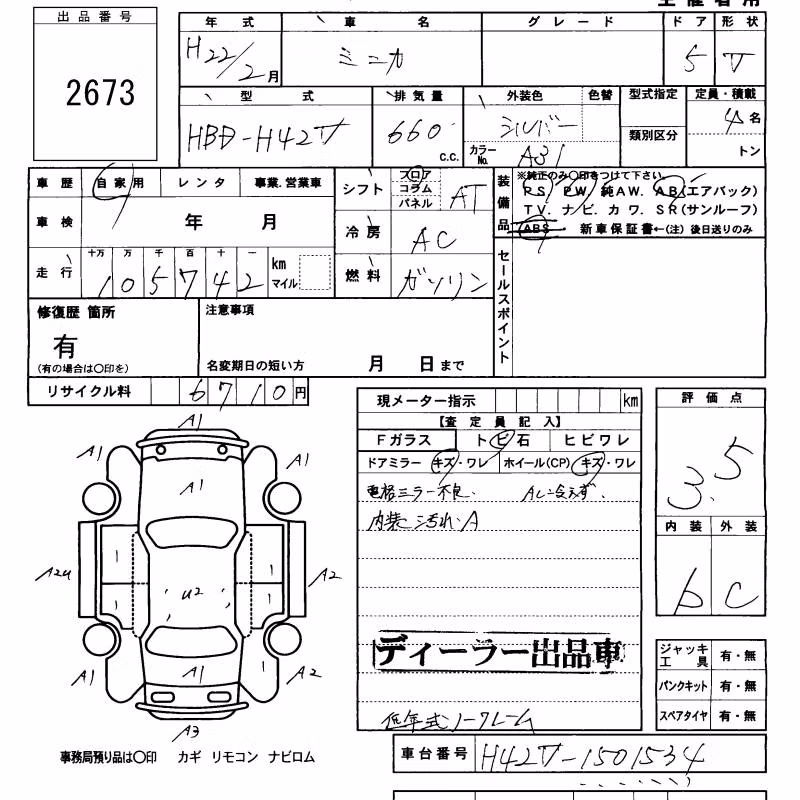 出品番号
2673
年式 車名 グレード ドア 形状
H22/2月 ミニカ 5 V
型式 排気量 外装色 色替 型式指定 定員・積載
HBD-H42V 660 c.c. シルバー 4名
カラーNo. A31 類別区分 トン
車歴 自家用 レンタ 事業.営業車
シフト フロア コラム パネル AT
装備品 ※純正のみ〇印をつけて下さい.
PS. PW. 純AW. AB(エアバック)
TV. ナビ. カワ. SR(サンルーフ)
ABS 新車保証書←(注) 後日送りのみ
車検 年 月
冷房 AC
走行 十万 万 千 百 十 一
105742 km マイル
燃料 ガソリン
セールスポイント
修復歴 箇所
有
(有の場合は〇印を)
注意事項
名変期日の短い方 月 日まで
リサイクル料 6710円
現メーター指示 km
【査定員記入】
Fガラス トビ石 ヒビワレ
ドアミラー キズ・ワレ ホイール(CP) キズ・ワレ
電格ミラー不良.
内装 汚れ.A
評価点
3.5
内装 外装
b C
A1
A1 A1
A1
A2u A2
u2
A1 A2
A3
ディーラー出品車
低年式ノークレーム
ジャッキ工具 有・無
パンクキット 有・無
スペアタイヤ 有・無
事務局預り品は〇印 カギ リモコン ナビロム
車台番号 H42V-1501534